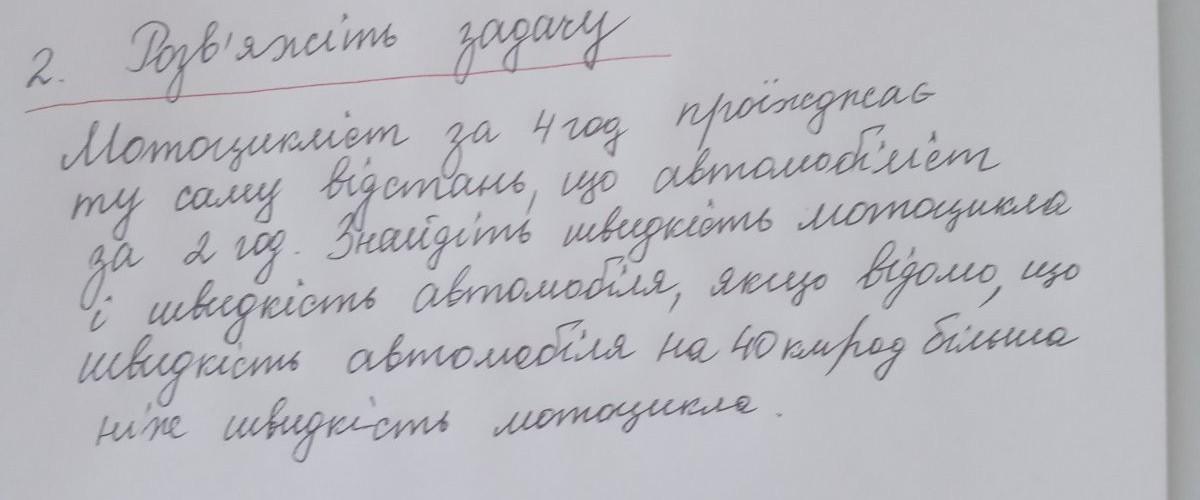 2. Розв'яжіть задачу
Мотоцикліст за 4 год проїжджає
ту саму відстань, що автомобіліст
за 2 год. Знайдіть швидкість мотоцикла
і швидкість автомобіля, якщо відомо, що
швидкість автомобіля на 40 км/год більша
ніж швидкість мотоцикла.